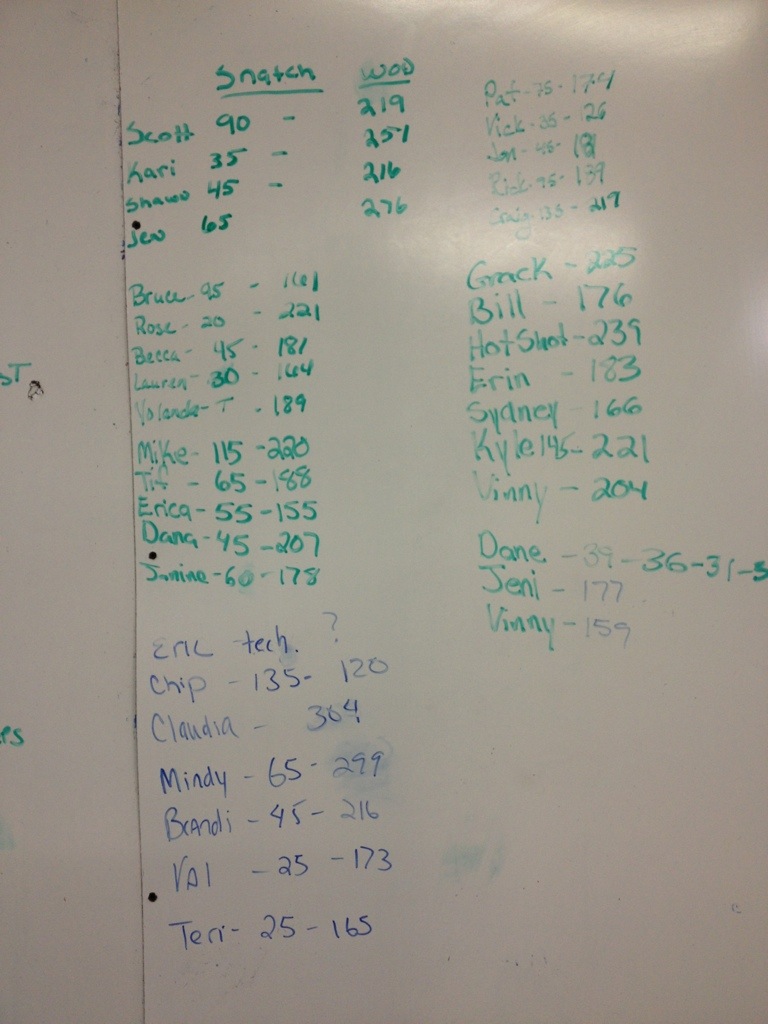 Snatch WOD
Scott 90 - 219
Kari 35 - 251
Shawn 45 - 216
Jen 65 276
Bruce 95 - 161
Rose - 20 - 221
Becca - 45 - 181
Lauren - 30 - 164
Yolanda - T - 189
Mike - 115 - 220
Tif - 65 - 188
Erica - 55 - 155
Dana - 45 - 207
Janine - 60 - 178
Eric tech. ?
Chip - 135 - 120
Claudia - 304
Mindy - 65 - 299
Brandi - 45 - 216
Val - 25 - 173
Teri - 25 - 165
Pat - 75 - 174
Vick - 35 - 126
Jon - 45 - 181
Rick - 95 - 139
Craig - 135 - 217
Grack - 225
Bill - 176
HotShot - 239
Erin - 183
Sydney - 166
Kyle 145 - 221
Vinny - 204
Dane - 39 - 36 - 31 -
Jeni - 177
Vinny - 159